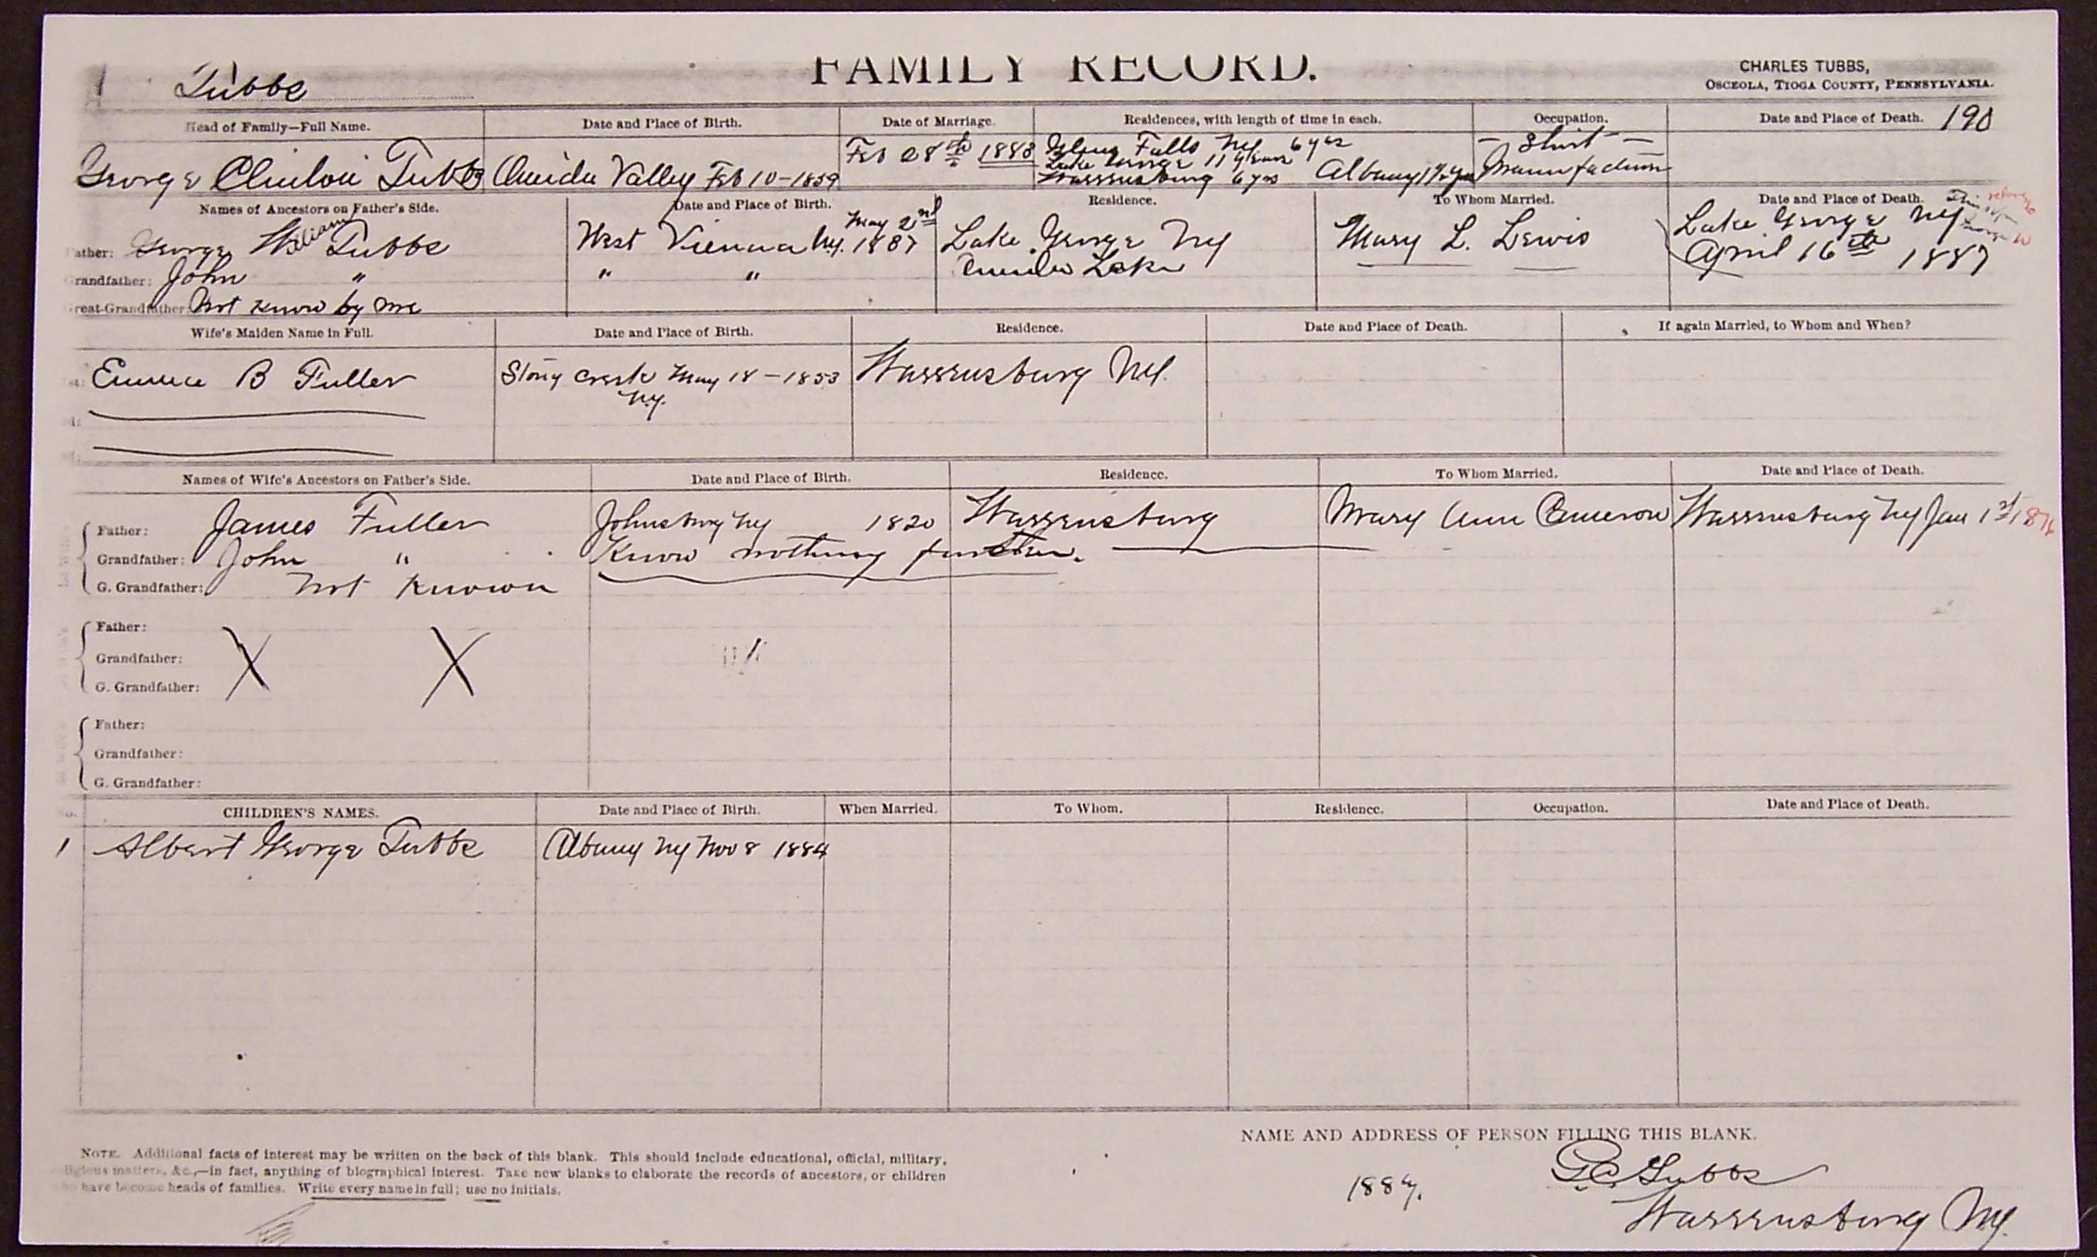 Tubbs
FAMILY RECORD.
CHARLES TUBBS,
OSCEOLA, TIOGA COUNTY, PENNSYLVANIA.
190
Head of Family—Full Name. Date and Place of Birth. Date of Marriage. Residences, with length of time in each. Occupation. Date and Place of Death.
George Clinton Tubbs Oneida Valley Feb 10-1859 Feb 28th 1883 Glens Falls NY 6 yrs
Lake George 11 years
Warrensburg 6 yrs Albany 1 yr
- Shirt -
Manufacturer
Names of Ancestors on Father's Side. Date and Place of Birth. Residence. To Whom Married. Date and Place of Death.
Father: George William Tubbs West Vienna N.Y. May 2nd 1887 Lake George NY Mary L. Lewis Lake George NY April 16th 1887
Grandfather: John " " " Oneida Lake
Great-Grandfather: Not Know by me
Wife's Maiden Name in Full. Date and Place of Birth. Residence. Date and Place of Death. If again Married, to Whom and When?
B Fuller Stony Creek May 18-1853 N.Y. Warrensburg NY.
Names of Wife's Ancestors on Father's Side. Date and Place of Birth. Residence. To Whom Married. Date and Place of Death.
Father: James Fuller Johnsburg NY 1820 Warrensburg Mary Ann Cameron Warrensburg NY Jan 1st
Grandfather: John " Know nothing further.
G. Grandfather: Not Known
Father:
Grandfather: X X
G. Grandfather:
Father:
Grandfather:
G. Grandfather:
CHILDREN'S NAMES. Date and Place of Birth. When Married. To Whom. Residence. Occupation. Date and Place of Death.
1 Albert George Tubbs Albany NY Nov 8 1884
NOTE. Additional facts of interest may be written on the back of this blank. This should include educational, official, military,
religious matters, &c.,—in fact, anything of biographical interest. Take new blanks to elaborate the records of ancestors, or children
who have become heads of families. Write every name in full; use no initials.
NAME AND ADDRESS OF PERSON FILLING THIS BLANK.
1889. G.C. Tubbs
Warrensburg NY.